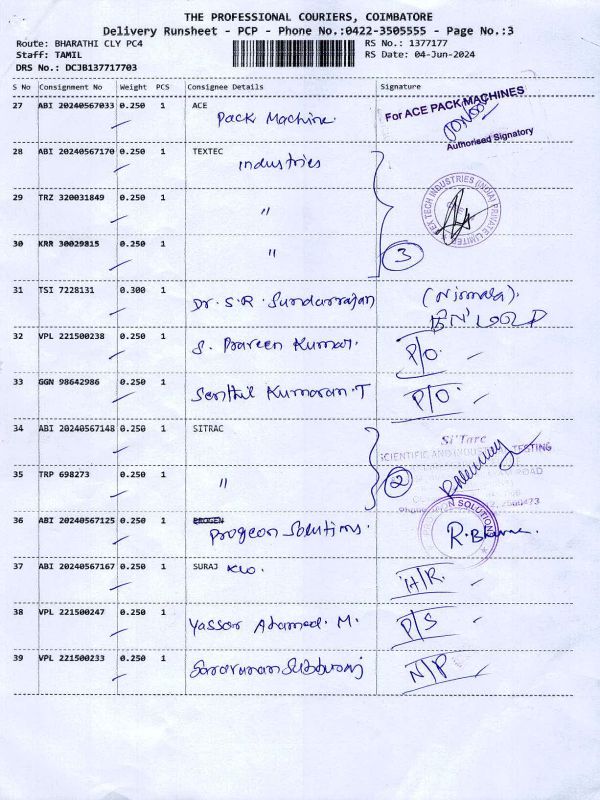 THE PROFESSIONAL COURIERS, COIMBATORE
Delivery Runsheet - PCP - Phone No.:0422-3505555 - Page No.:3
Route: BHARATHI CLY PC4 RS No.: 1377177
Staff: TAMIL RS Date: 04-Jun-2024
DRS No.: DCJB137717703
S No Consignment No Weight PCS Consignee Details Signature
27 ABI 20240567033 0.250 1 ACE For ACE PACK MACHINES
Pack Machine.
Authorised Signatory
28 ABI 20240567170 0.250 1 TEXTEC
industries
TEX TECH INDUSTRIES (INDIA) PRIVATE LIMITED
29 TRZ 320031849 0.250 1
"
30 KRR 30029815 0.250 1
" 3
31 TSI 7228131 0.300 1
Dr. S.R. Sundarrajan (Nirmala).
32 VPL 221500238 0.250 1
S. Praveen Kumar. P/O.
33 GGN 98642986 0.250 1
Senthil Kumaran.T P/O.
34 ABI 20240567148 0.250 1 SITRAC
Si'Tarc
SCIENTIFIC AND INDUSTRIAL TESTING
ROAD
35 TRP 698273 0.250 1
" 2
Phone
36 ABI 20240567125 0.250 1 PROGEN
Progeon Solutions.
SOLUTIONS
R.
37 ABI 20240567167 0.250 1 SURAJ
H/R.
38 VPL 221500247 0.250 1
Yassor Ahamed. M. P/S
39 VPL 221500233 0.250 1
Saravanan Subburaj N/P